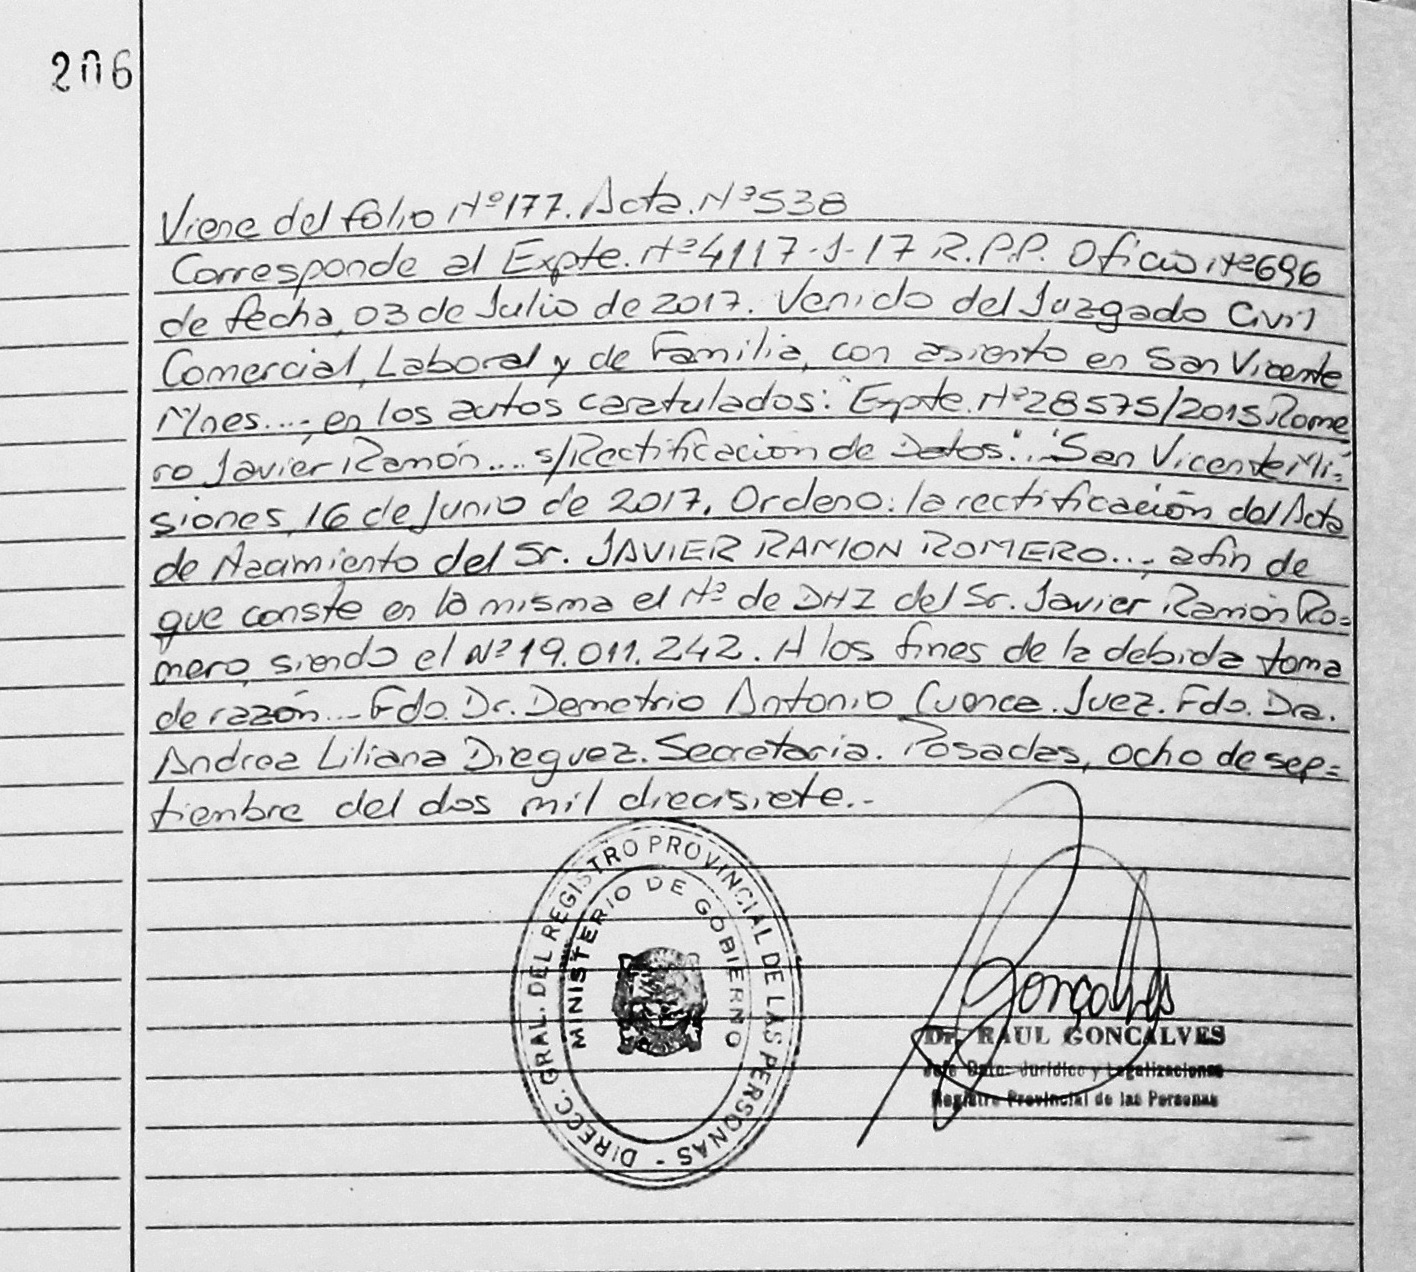 206
Viene del folio Nº177. Acta. Nº538
Corresponde al Expte. Nº4117-J-17 R.P.P. Oficio Nº696
de fecha, 03 de Julio de 2017. Venido del Juzgado Civil
Comercial, Laboral y de Familia, con asiento en San Vicente
Mnes...., en los autos caratulados: "Expte. Nº28575/2015 Rome
ro Javier Ramón.... s/Rectificación de Datos". "San Vicente Mi=
siones, 16 de Junio de 2017. Ordeno: la rectificación del Acta
de Nacimiento del Sr. JAVIER RAMON ROMERO..., a fin de
que conste en la misma el Nº de DNI del Sr. Javier Ramón Ro=
mero, siendo el Nº19.011.242. A los fines de la debida toma
de razón... Fdo. Dr. Demetrio Antonio Cuenca. Juez. Fdo. Dra.
Andrea Liliana Dieguez. Secretaria. Posadas, ocho de sep=
tiembre del dos mil diecisiete..-
DIRECC. GRAL. DEL REGISTRO PROVINCIAL DE LAS PERSONAS -
MINISTERIO DE GOBIERNO
Goncalves
Dr. RAUL GONCALVES
Jefe Dpto. Jurídico y Legalizaciones
Registro Provincial de las Personas